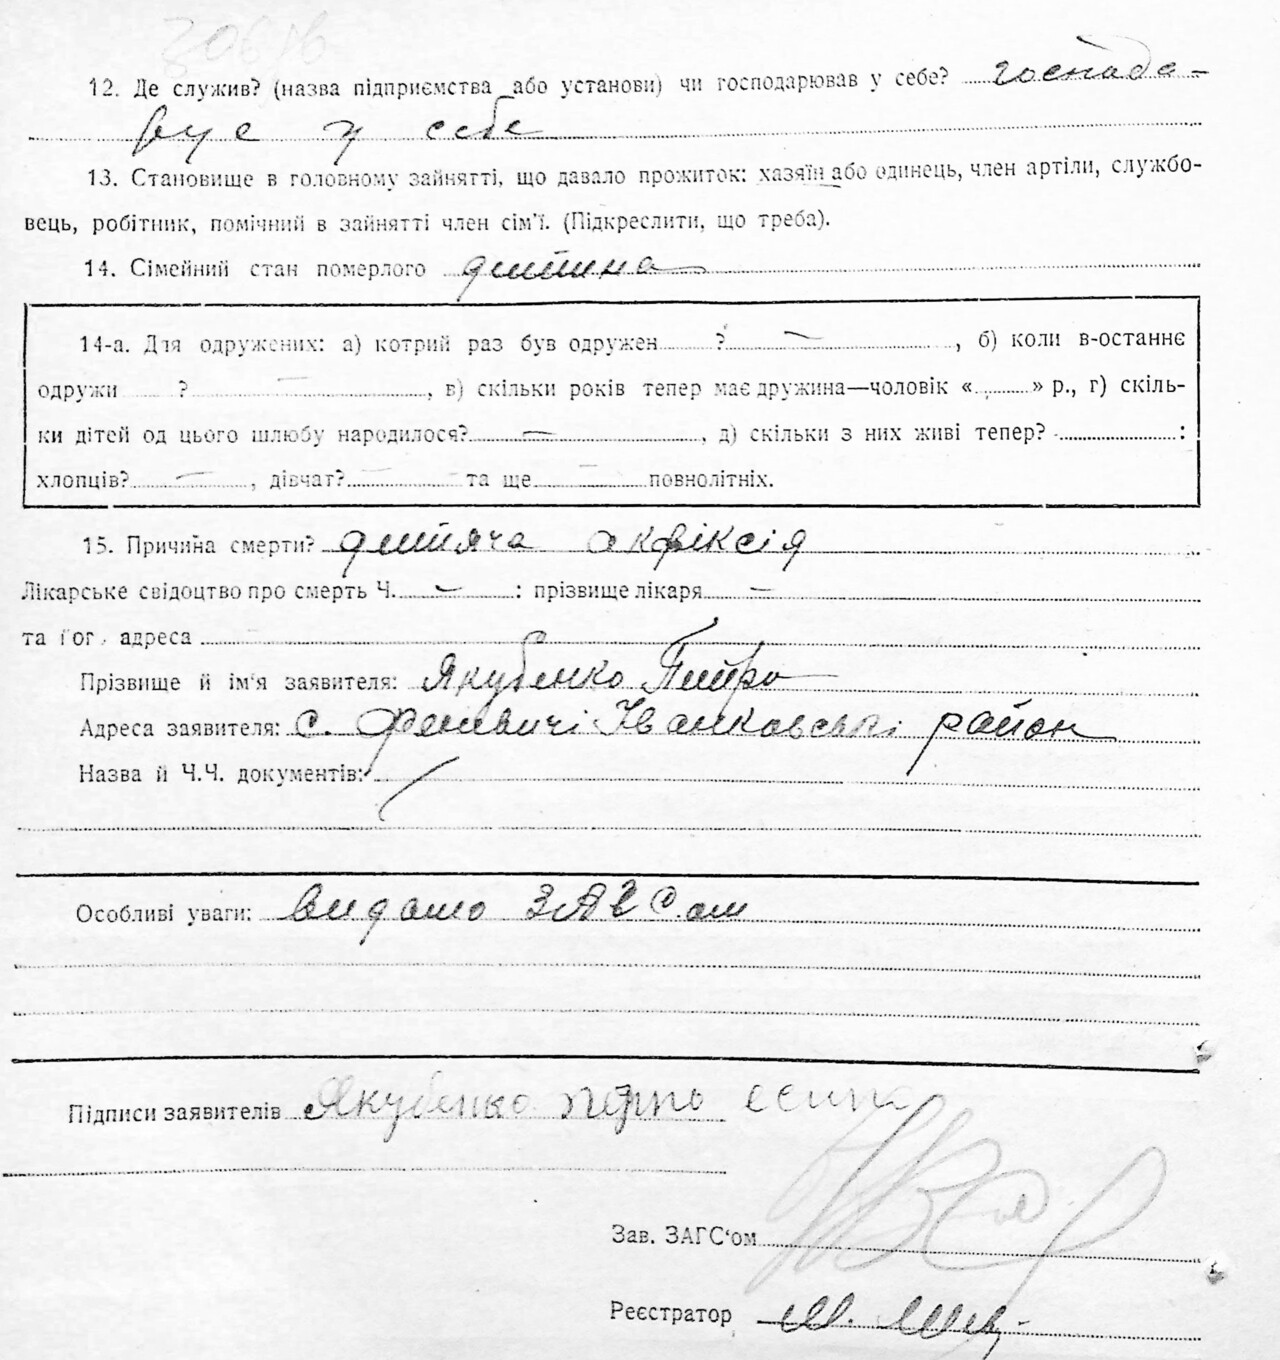 12. Де служив? (назва підприємства або установи) чи господарював у себе? господа-
рує у себе
13. Становище в головному зайнятті, що давало прожиток: хазяїн або одинець, член артіли, службо-
вець, робітник, помічний в зайнятті член сім'ї. (Підкреслити, що треба).
14. Сімейний стан померлого дитина
14-а. Для одружених: а) котрий раз був одружен ? — , б) коли в-останнє
одружи ? — , в) скільки років тепер має дружина—чоловік « » р., г) скіль-
ки дітей од цього шлюбу народилося? — , д) скільки з них живі тепер? :
хлопців? — , дівчат? — та ще — повнолітніх.
15. Причина смерти? дитяча асфіксія
Лікарське свідоцтво про смерть Ч. — : прізвище лікаря —
та адреса
Прізвище й ім'я заявителя: Якубенко Петро
Адреса заявителя: с. Феневичі Іванковський район
Назва й Ч.Ч. документів:
Особливі уваги: видано ЗАГСом
Підписи заявителів Якубенко
Зав. ЗАГС'ом
Реєстратор